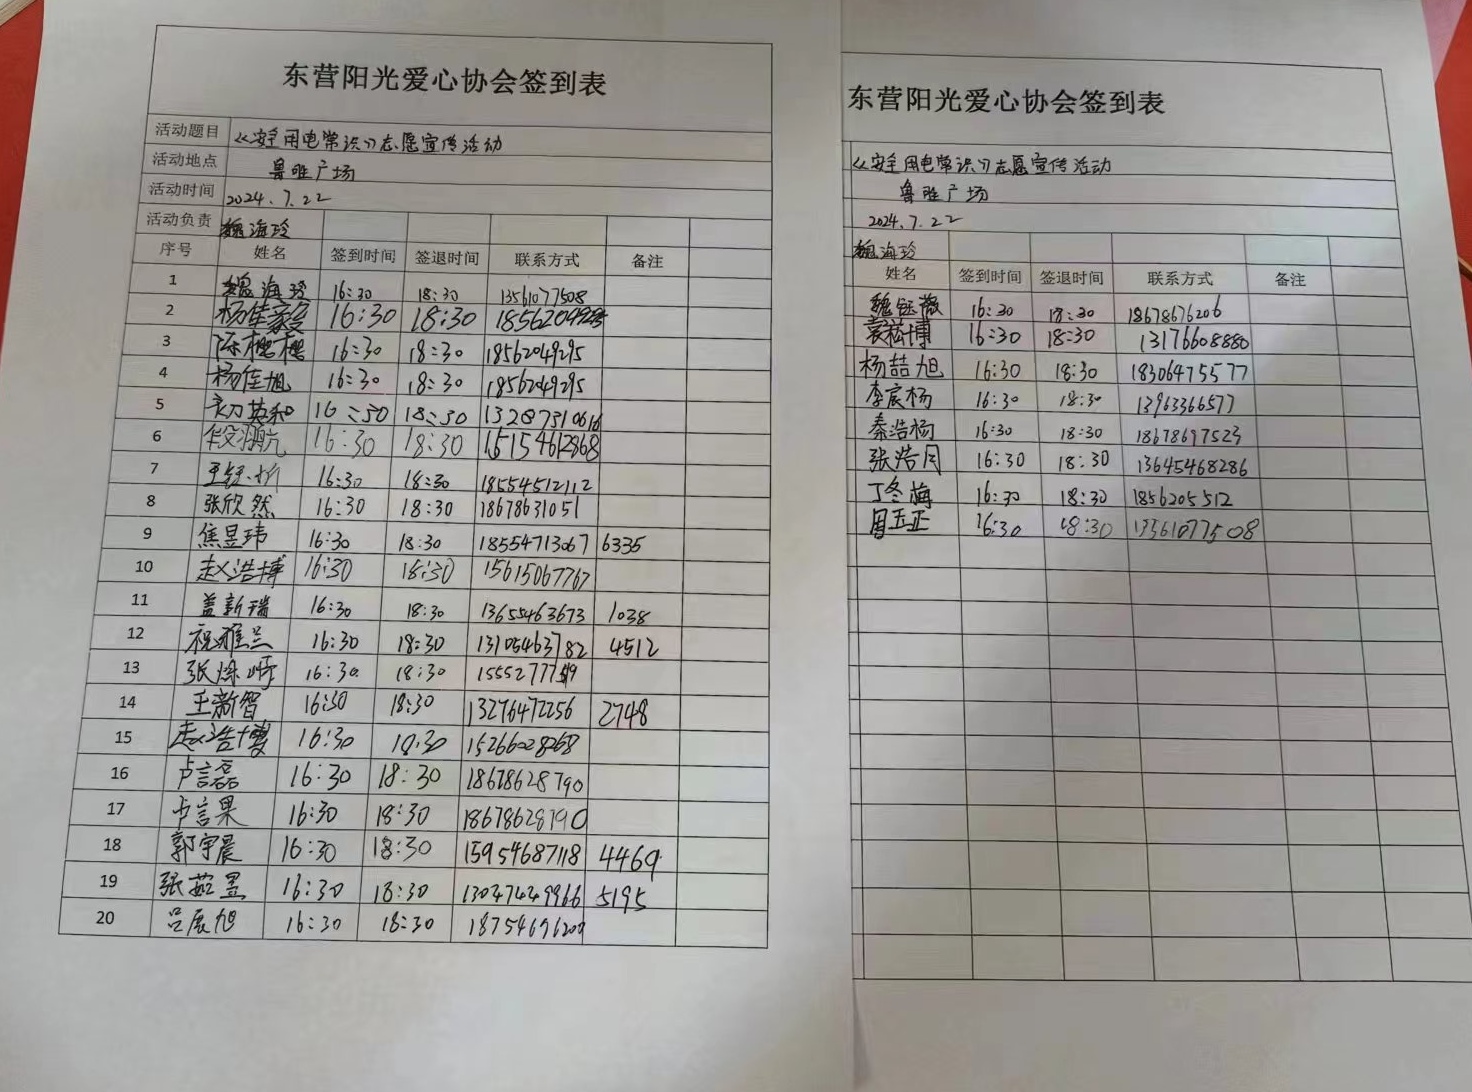 东营阳光爱心协会签到表
活动题目 《安全用电常识》志愿宣传活动
活动地点 鲁胜广场
活动时间 2024.7.22
活动负责 魏海玲
序号 姓名 签到时间 签退时间 联系方式 备注
1 魏海玲 16:30 18:30 13561077508
2 杨佳 16:30 18:30
3 陈樱樱 16:30 18:30 18562049295
4 杨佳旭 16:30 18:30 18562049295
5 刘英和 16:30 18:30
6 16:30 18:30 15154612868
7 王 16:30 18:30 18554512112
8 张欣然 16:30 18:30 18678631051
9 焦昱玮 16:30 18:30 18554713067 6335
10 赵浩博 16:30 18:30 15615067767
11 盖新瑞 16:30 18:30 13655463673 1038
12 祝雅兰 16:30 18:30 13105463782 4512
13 张 16:30 18:30
14 王新智 16:30 18:30 13276472256 2748
15 赵浩博 16:30 18:30 15266028268
16 卢言磊 16:30 18:30 18678628790
17 卢言果 16:30 18:30 18678628790
18 郭宇晨 16:30 18:30 15954687118 4469
19 张茹昱 16:30 18:30 13047449966 5195
20 吕展旭 16:30 18:30
东营阳光爱心协会签到表
《安全用电常识》志愿宣传活动
鲁胜广场
2024.7.22
魏海玲
姓名 签到时间 签退时间 联系方式 备注
魏钰薇 16:30 18:30 18678676206
袁崧博 16:30 18:30 13176608880
杨喆旭 16:30 18:30 18306475577
李宸杨 16:30 18:30 13963366577
秦浩杨 16:30 18:30 18678697523
张浩月 16:30 18:30 13645468286
丁冬梅 16:30 18:30 1856205512
周玉正 16:30 18:30 13561077508